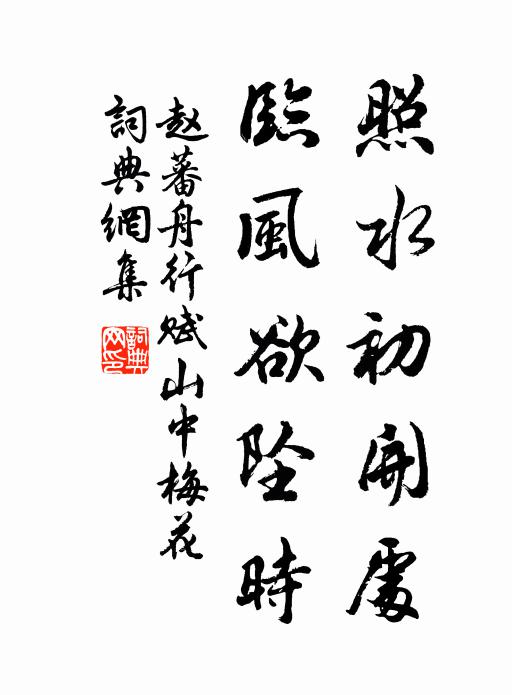 照水初開處
臨風欲墜時
赵蕃舟行賦山中梅花
詞典網集
詞典网印